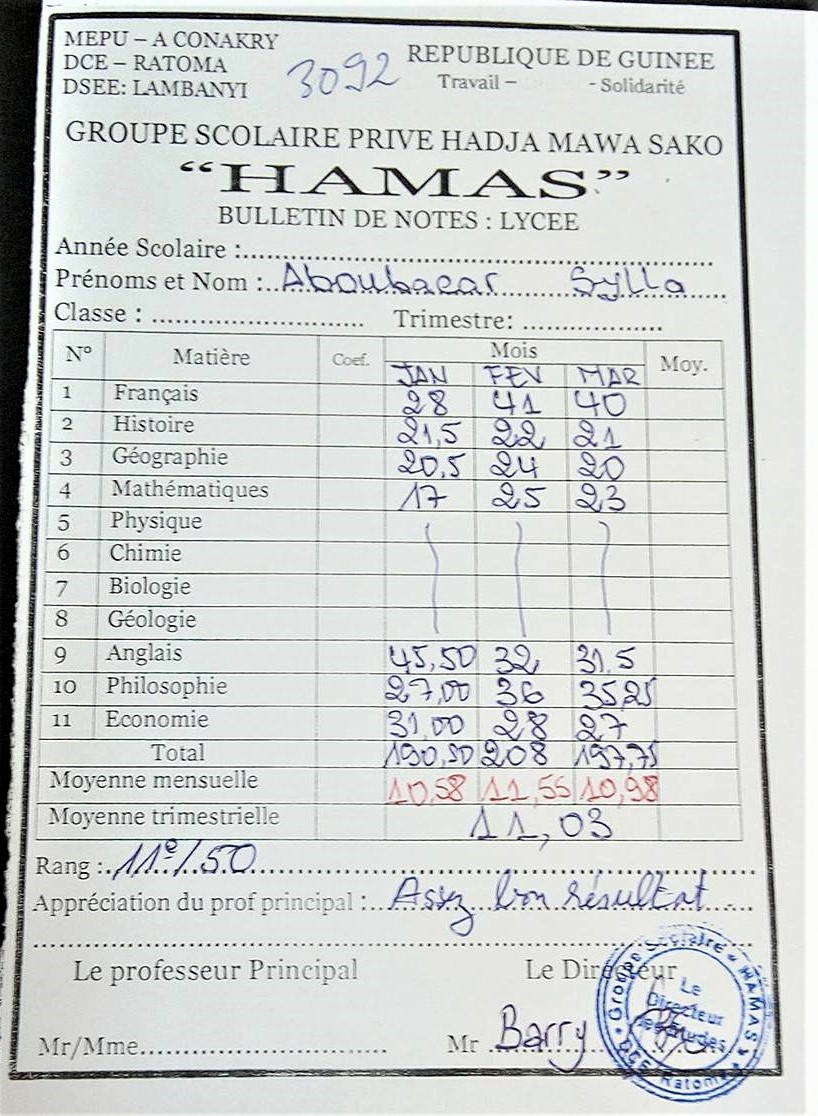 MEPU – A CONAKRY
DCE – RATOMA
DSEE: LAMBANYI
3092
REPUBLIQUE DE GUINEE
Travail – - Solidarité
GROUPE SCOLAIRE PRIVE HADJA MAWA SAKO
“HAMAS”
BULLETIN DE NOTES : LYCEE
Année Scolaire :
Prénoms et Nom : Aboubacar Sylla
Classe : Trimestre:
N° Matière Coef. Mois Moy.
JAN FEV MAR
1 Français 28 41 40
2 Histoire 21,5 22 21
3 Géographie 20,5 24 20
4 Mathématiques 17 25 23
5 Physique
6 Chimie
7 Biologie
8 Géologie
9 Anglais 45,50 32 31.5
10 Philosophie 27,00 36 35,25
11 Economie 31,00 28 27
Total 190,50 208 197,75
Moyenne mensuelle 10,58 11,55 10,98
Moyenne trimestrielle 11,03
Rang : 11e/50
Appréciation du prof principal : Assez bon résultat
Le professeur Principal Le Directeur
Mr/Mme Mr Barry
Groupe Scolaire « HAMAS »
Le
Directeur
des Etudes
DCE Ratoma